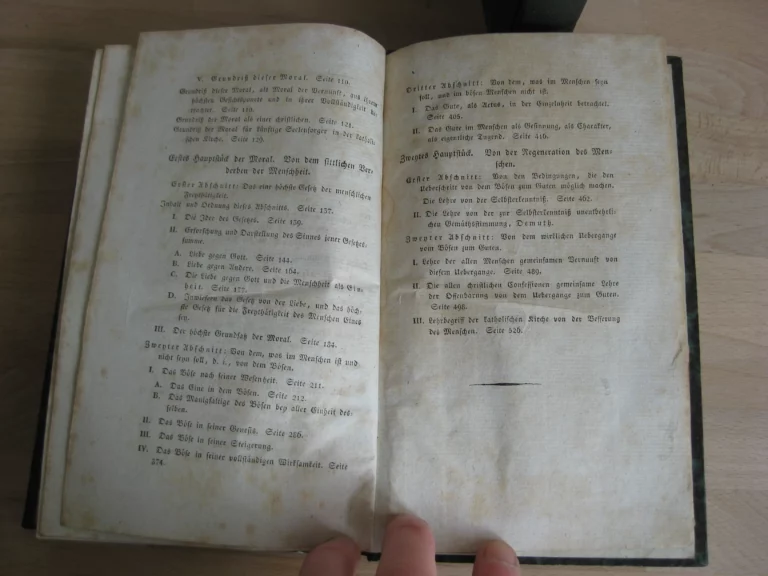 V. Grundriß dieser Moral. Seite 110.
Grundriß dieser Moral, als Moral der Vernunft, aus ihrem
höchsten Gesichtspuncte und in ihrer Vollständigkeit be-
trachtet. Seite 110.
Grundriß der Moral als einer christlichen. Seite 121.
Grundriß der Moral für künftige Seelensorger in der kathol-
schen Kirche. Seite 128.
Erstes Hauptstück der Moral. Von dem sittlichen Ver-
derben der Menschheit.
Erster Abschnitt: Das eine höchste Gesetz der menschlichen
Freythätigkeit.
Inhalt und Ordnung dieses Abschnitts. Seite 137.
I. Die Idee des Gesetzes. Seite 139.
II. Erforschung und Darstellung des Sinnes jener Gesetzes-
summe.
A. Liebe gegen Gott. Seite 144.
B. Liebe gegen Andere. Seite 164.
C. Die Liebe gegen Gott und die Menschheit als Ein-
heit. Seite 177.
D. Inwiefern das Gesetz von der Liebe, und das höch-
ste Gesetz für die Freythätigkeit des Menschen Eines
sey.
III. Der höchste Grundsatz der Moral. Seite 184.
Zweyter Abschnitt: Von dem, was im Menschen ist und
nicht seyn soll, d. i., von dem Bösen.
I. Das Böse nach seiner Wesenheit. Seite 211.
A. Das Eine in dem Bösen. Seite 212.
B. Das Manigfaltige des Bösen bey aller Einheit des-
selben.
II. Das Böse in seiner Genesis. Seite 226.
III. Das Böse in seiner Steigerung.
IV. Das Böse in seiner vollständigen Wirksamkeit. Seite
374.
Dritter Abschnitt: Von dem, was im Menschen seyn
soll, und im bösen Menschen nicht ist.
I. Das Gute, als Actus, in der Einzelnheit betrachtet.
Seite 405.
II. Das Gute im Menschen als Gesinnung, als Charakter,
als eigentliche Tugend. Seite 416.
Zweytes Hauptstück. Von der Regeneration des Men-
schen.
Erster Abschnitt: Von den Bedingungen, die den
Ueberschritt von dem Bösen zum Guten möglich machen.
Die Lehre von der Selbsterkenntniß. Seite 462.
II. Die Lehre von der zur Selbsterkenntniß unentbehrli-
chen Gemüthsstimmung, Demuth.
Zweyter Abschnitt: Von dem wirklichen Uebergange
vom Bösen zum Guten.
I. Lehre der allen Menschen gemeinsamen Vernunft von
diesem Uebergange. Seite 489.
II. Die allen christlichen Confessionen gemeinsame Lehre
der Offenbarung von dem Uebergange zum Guten.
Seite 498.
III. Lehrbegriff der katholischen Kirche von der Besserung
des Menschen. Seite 526.